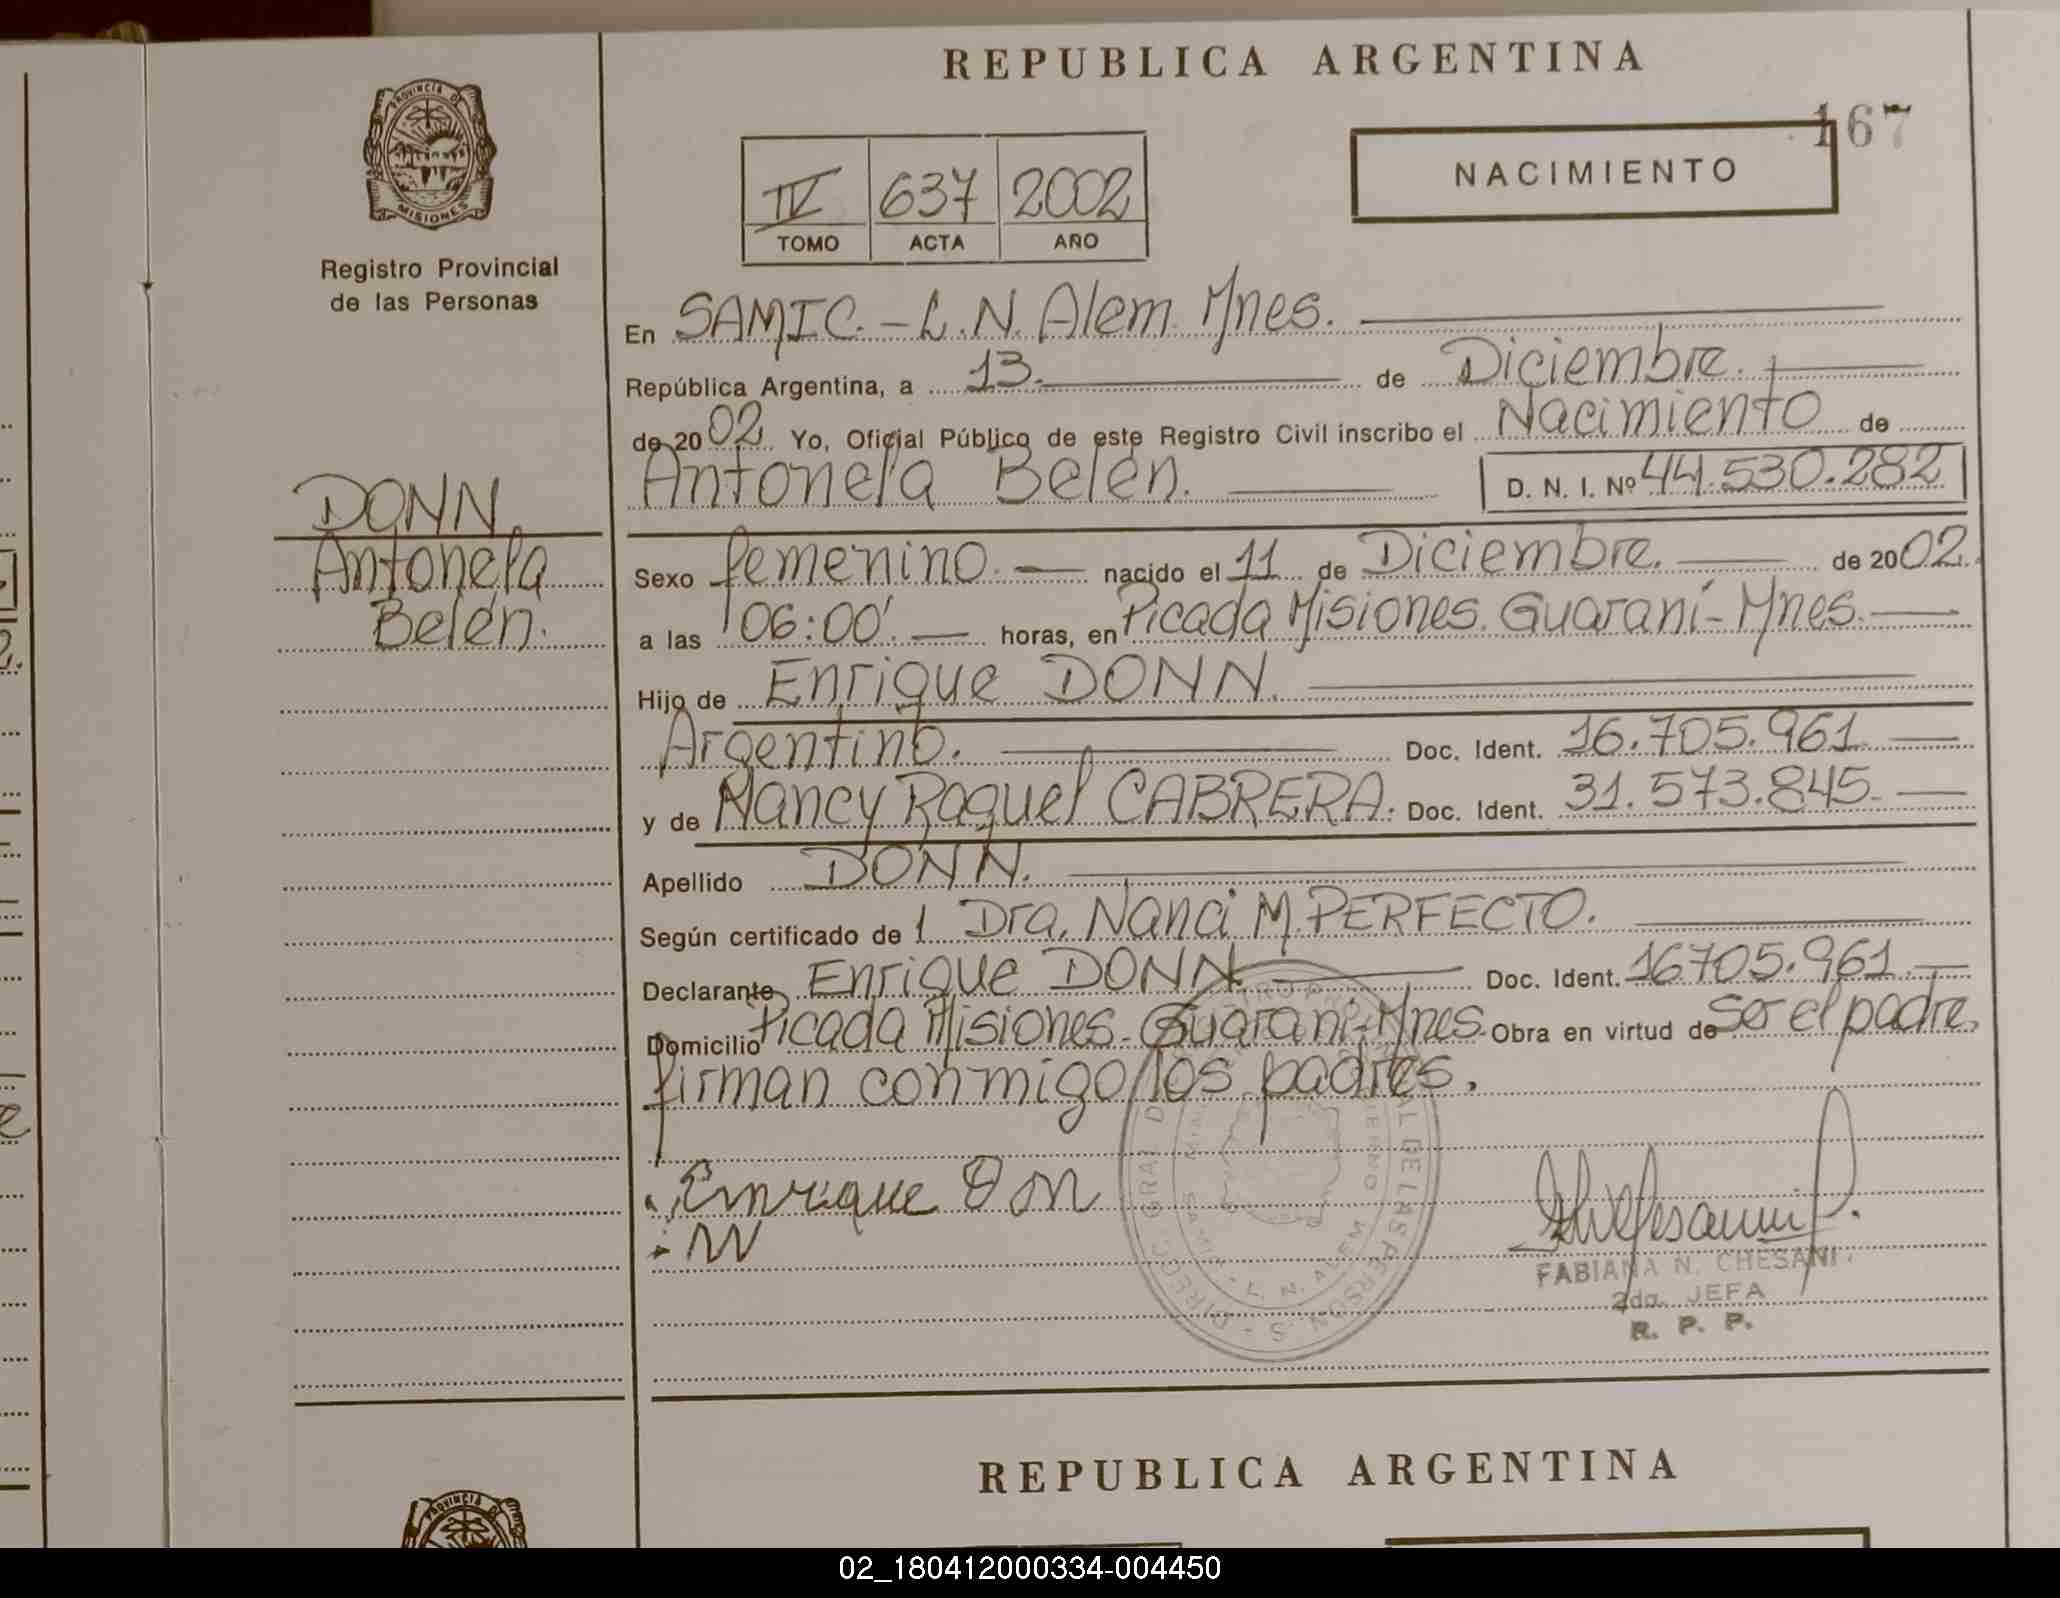 REPUBLICA ARGENTINA
167
PROVINCIA DE
MISIONES
Registro Provincial
de las Personas
NACIMIENTO
IV 637 2002
TOMO ACTA AÑO
En SAMIC.-L.N. Alem. Mnes.
República Argentina, a 13. de Diciembre.
de 2002 Yo, Oficial Público de este Registro Civil inscribo el Nacimiento de
Antonela Belén. D. N. I. Nº 44.530.282
DONN.
Antonela
Belén.
Sexo femenino. nacido el 11 de Diciembre. de 2002.
a las 06:00' horas, en Picada Misiones. Guaraní-Mnes.
Hijo de Enrique DONN.
Argentino. Doc. Ident. 16.705.961.
y de Nancy Raquel CABRERA. Doc. Ident. 31.573.845.
Apellido DONN.
Según certificado de 1 Dra. Nanci M. PERFECTO.
Declarante Enrique DONN. Doc. Ident. 16705.961.
Domicilio Picada Misiones. Guaraní-Mnes. Obra en virtud de ser el padre,
firman conmigo los padres.
Enrique
FABIANA N. CHESANI
2da. JEFA
R. P. P.
SAMIC - L. N. ALEM
REPUBLICA ARGENTINA
PROVINCIA DE
02_180412000334-004450